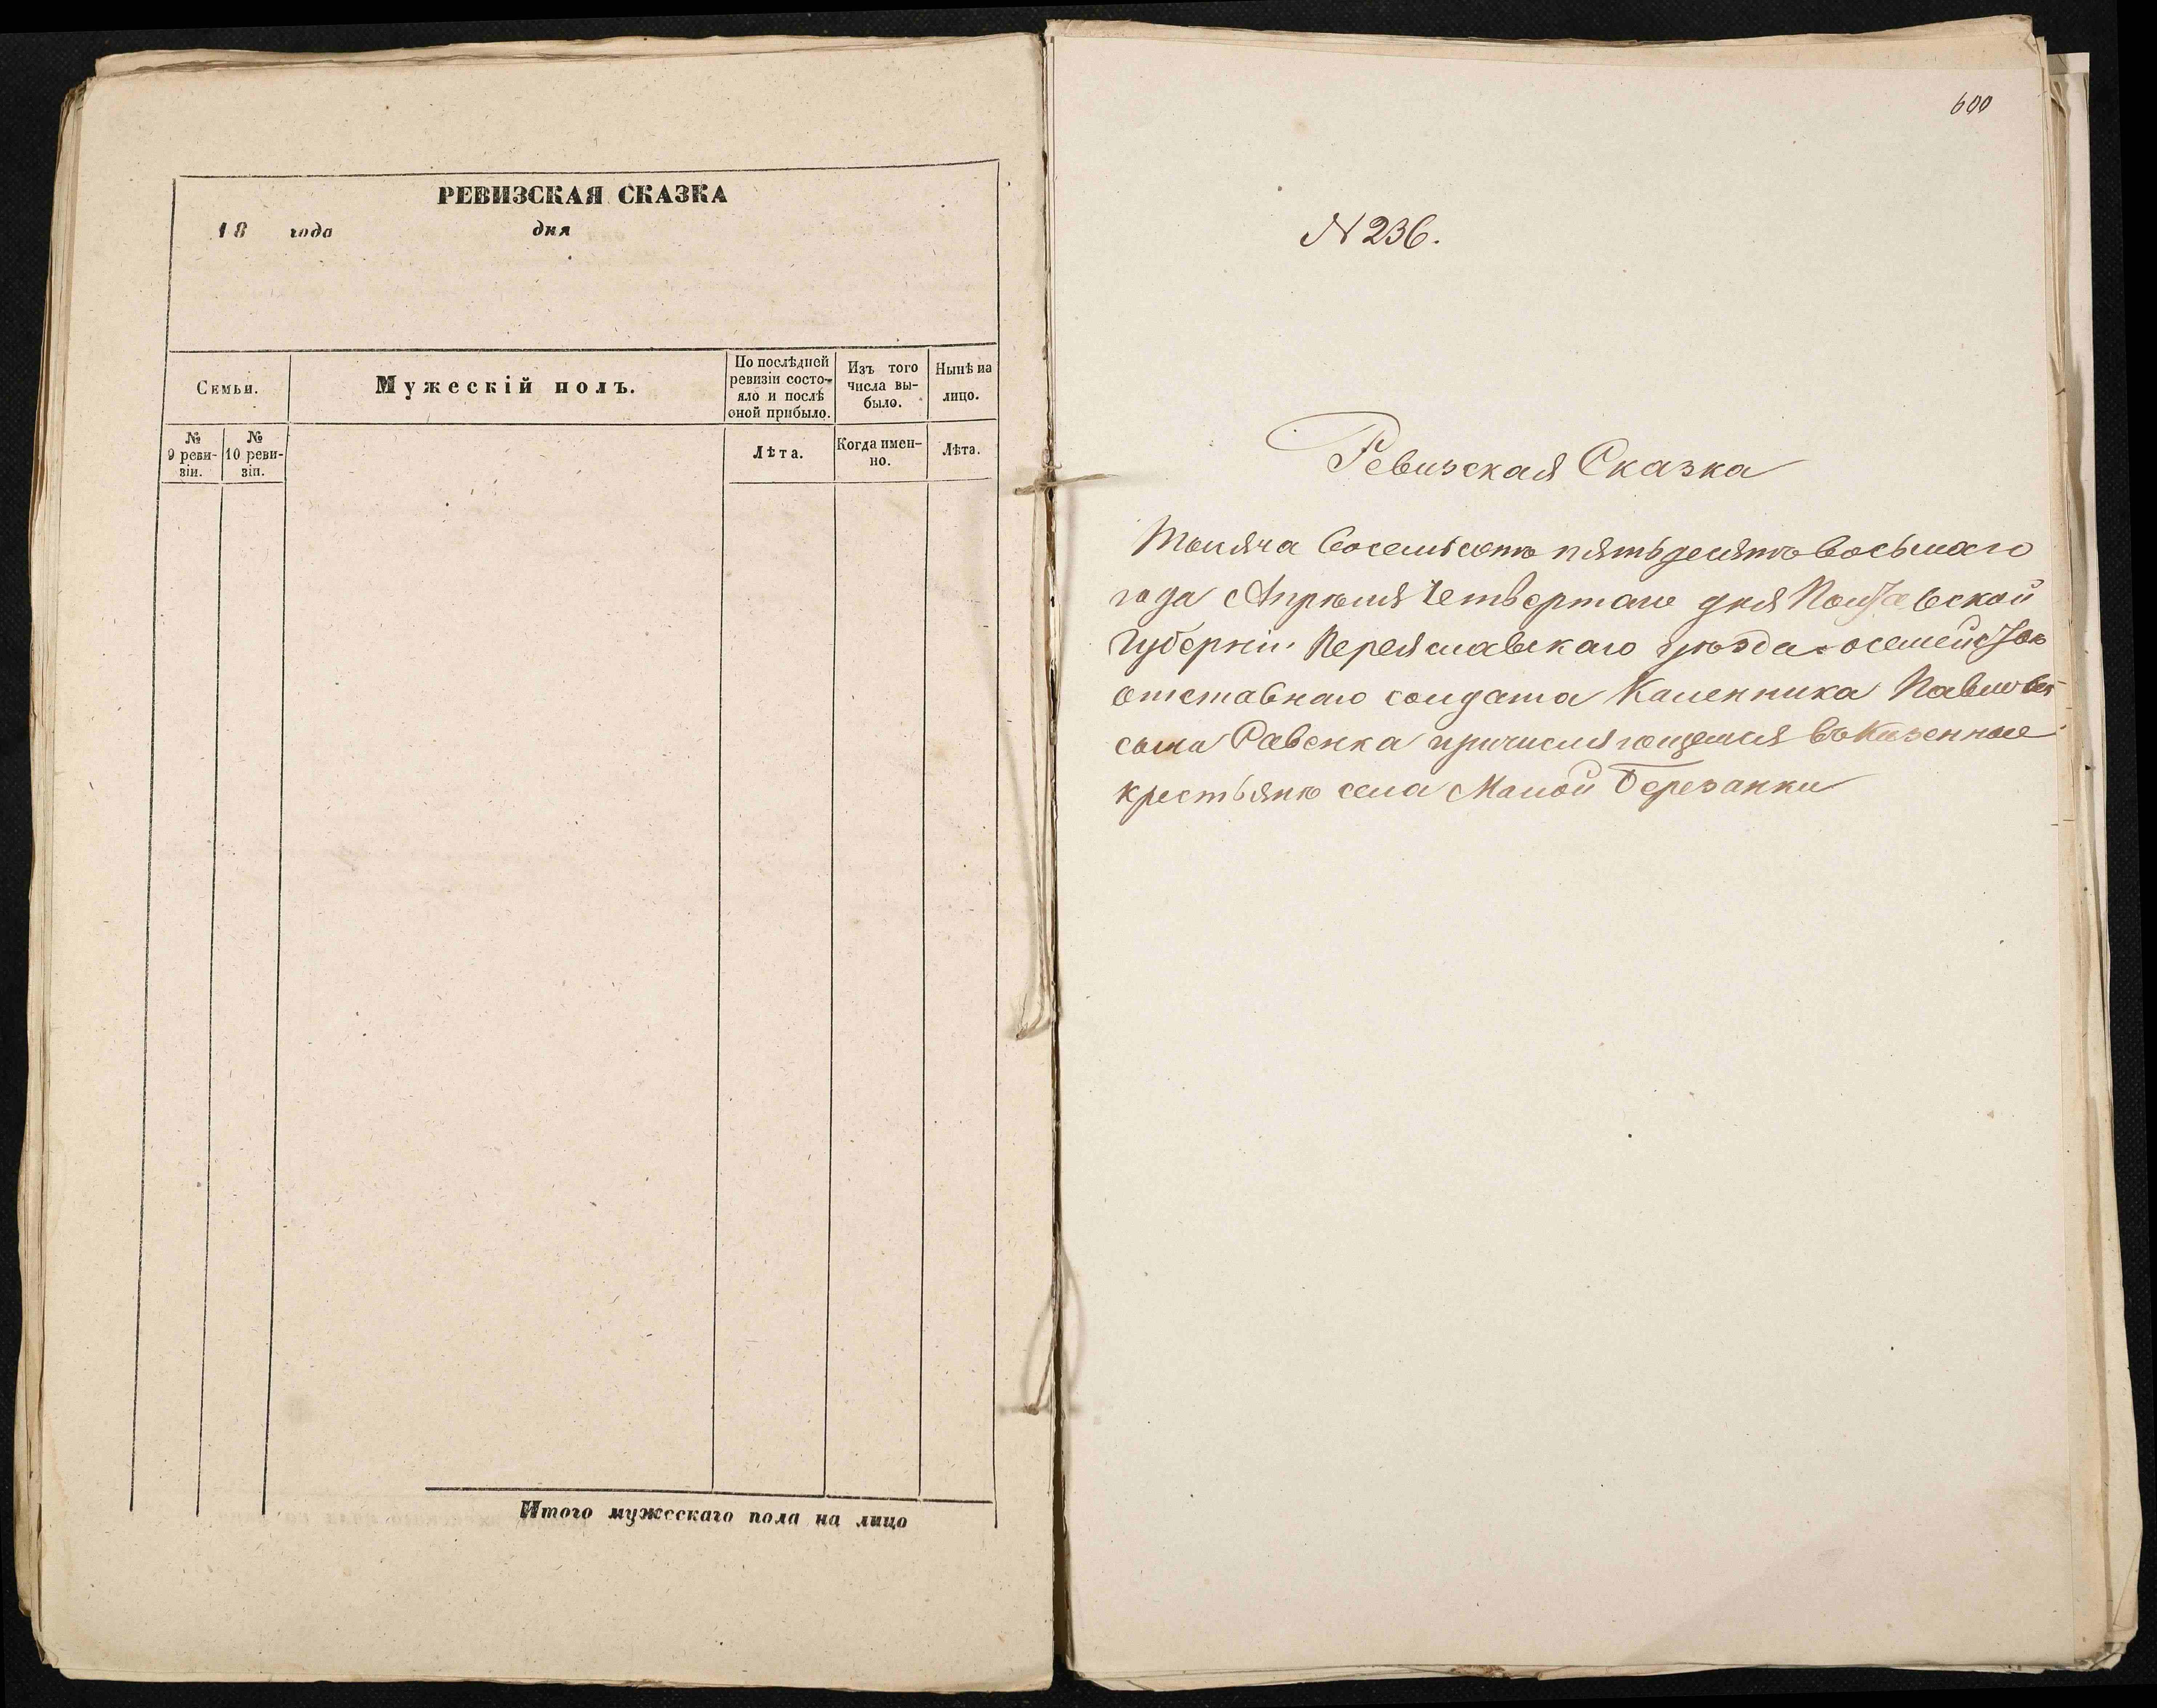 РЕВИЗСКАЯ СКАЗКА
18 года дня
Семьи.
Мужескій полъ.
По послѣдней
ревизіи состо-
яло и послѣ
оной прибыло.
Изъ того
числа вы-
было.
Ныиѣ на
лицо.
№
9 реви-
зіи.
№
10 реви-
зіи.
Лѣта.
Когда имен-
но.
Лѣта.
Итого мужескаго пола на лицо
600
N 236.
Ревизская Сказка
Тысяча восемьсотъ пятьдесятъ восьмаго
года Апрѣля Четвертаго дня Полтавской
Губерніи Переяславскаго уѣзда о семействѣ
отставнаго солдата Каленника Павлова
сына Равенка причисляющемся въ Казенные
крестьяне села Малой Березанки